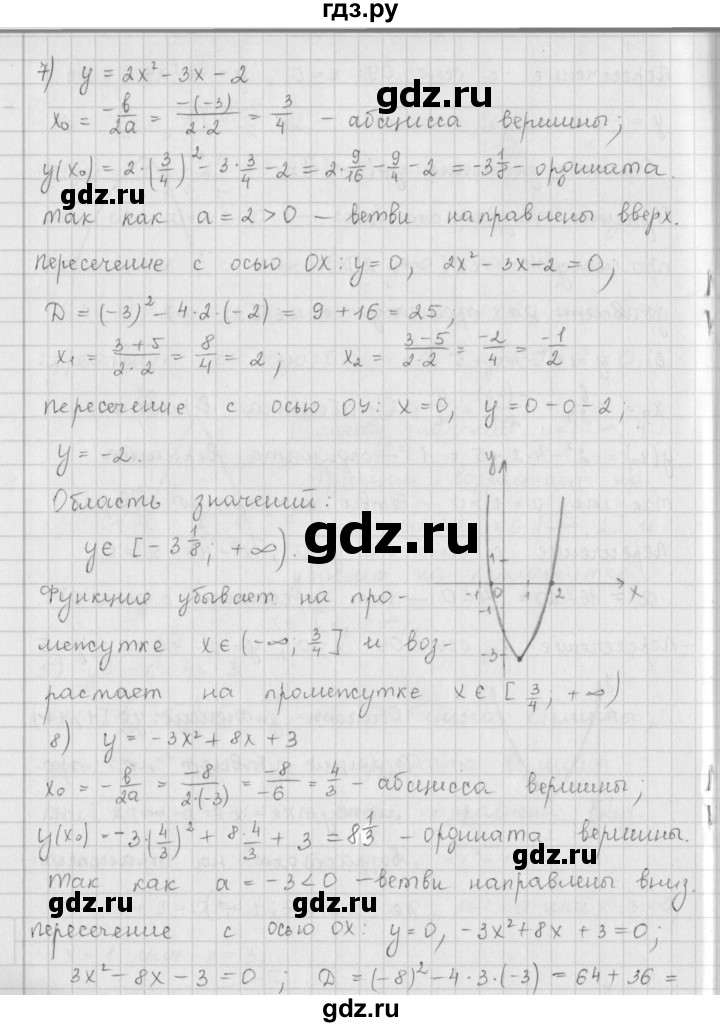 гдз.ру
7) y = 2x² - 3x - 2
x₀ = -b/2a = -(-3)/2·2 = 3/4 - абсцисса вершины;
y(x₀) = 2·(3/4)² - 3·3/4 - 2 = 2·9/16 - 9/4 - 2 = -3 1/8 - ордината.
gdz.ru
так как a = 2 > 0 - ветви направлены вверх.
пересечение с осью OX: y = 0, 2x² - 3x - 2 = 0;
D = (-3)² - 4·2·(-2) = 9 + 16 = 25,
x₁ = 3+5/2·2 = 8/4 = 2; x₂ = 3-5/2·2 = -2/4 = -1/2
пересечение с осью OY: x = 0, y = 0 - 0 - 2;
y = -2.
y
Область значений:
y ∈ [-3 1/8; +∞).
gdz.ru
1
-1 0 1 2 x
-1
-3
Функцие убывает на про-
межутке x ∈ (-∞; 3/4] и воз-
растает на промежутке x ∈ [3/4; +∞)
8) y = -3x² + 8x + 3
x₀ = -b/2a = -8/2·(-3) = -8/-6 = 4/3 - абсцисса вершины;
y(x₀) = -3·(4/3)² + 8·4/3 + 3 = 8 1/3 - ордината вершины.
gdz.ru
так как a = -3 < 0 - ветви направлены вниз.
gdz.ru
пересечение с осью OX: y = 0, -3x² + 8x + 3 = 0;
3x² - 8x - 3 = 0; D = (-8)² - 4·3·(-3) = 64 + 36 =
gdz.ru